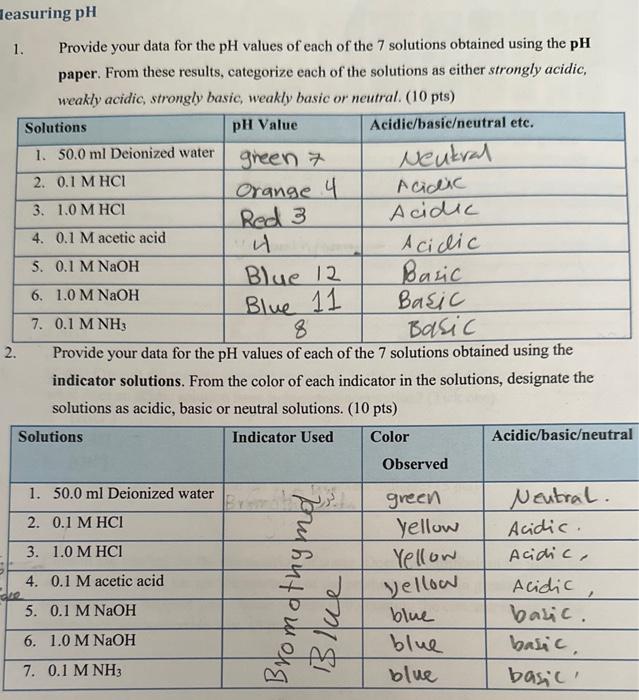 Measuring pH
1. Provide your data for the pH values of each of the 7 solutions obtained using the pH
paper. From these results, categorize each of the solutions as either strongly acidic,
weakly acidic, strongly basic, weakly basic or neutral. (10 pts)
Solutions pH Value Acidic/basic/neutral etc.
1. 50.0 ml Deionized water green 7 Neutral
2. 0.1 M HCl Orange 4 Acidic
3. 1.0 M HCl Red 3 Acidic
4. 0.1 M acetic acid 4 Acidic
5. 0.1 M NaOH Blue 12 Basic
6. 1.0 M NaOH Blue 11 Basic
7. 0.1 M NH3 8 Basic
2. Provide your data for the pH values of each of the 7 solutions obtained using the
indicator solutions. From the color of each indicator in the solutions, designate the
solutions as acidic, basic or neutral solutions. (10 pts)
Solutions Indicator Used Color Acidic/basic/neutral
Observed
1. 50.0 ml Deionized water green Neutral.
2. 0.1 M HCl Yellow Acidic.
3. 1.0 M HCl Yellow Acidic,
4. 0.1 M acetic acid yellow Acidic,
5. 0.1 M NaOH blue basic.
6. 1.0 M NaOH blue basic,
7. 0.1 M NH3 blue basic'
Bromothymol
Blue